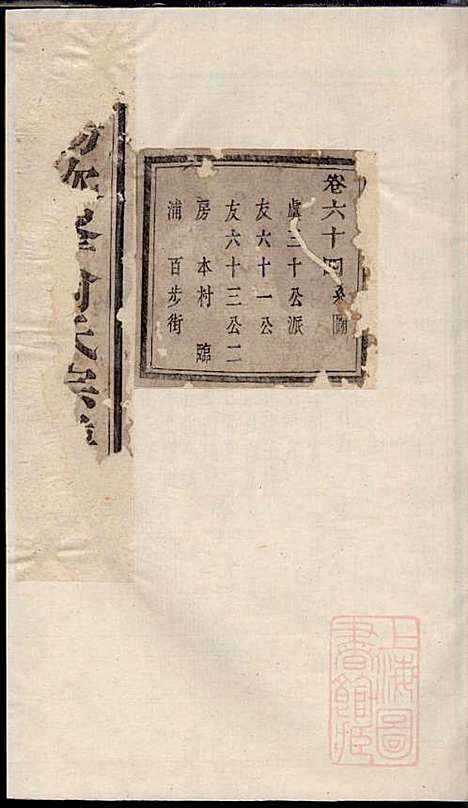 卷六十四系圖
盧三十公派
友六十一公
友六十三公二
房 本村 臨
浦 百步街
氏宗
上海圖書館藏